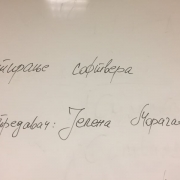 тирање софтвера
предавач: Јелена Морача